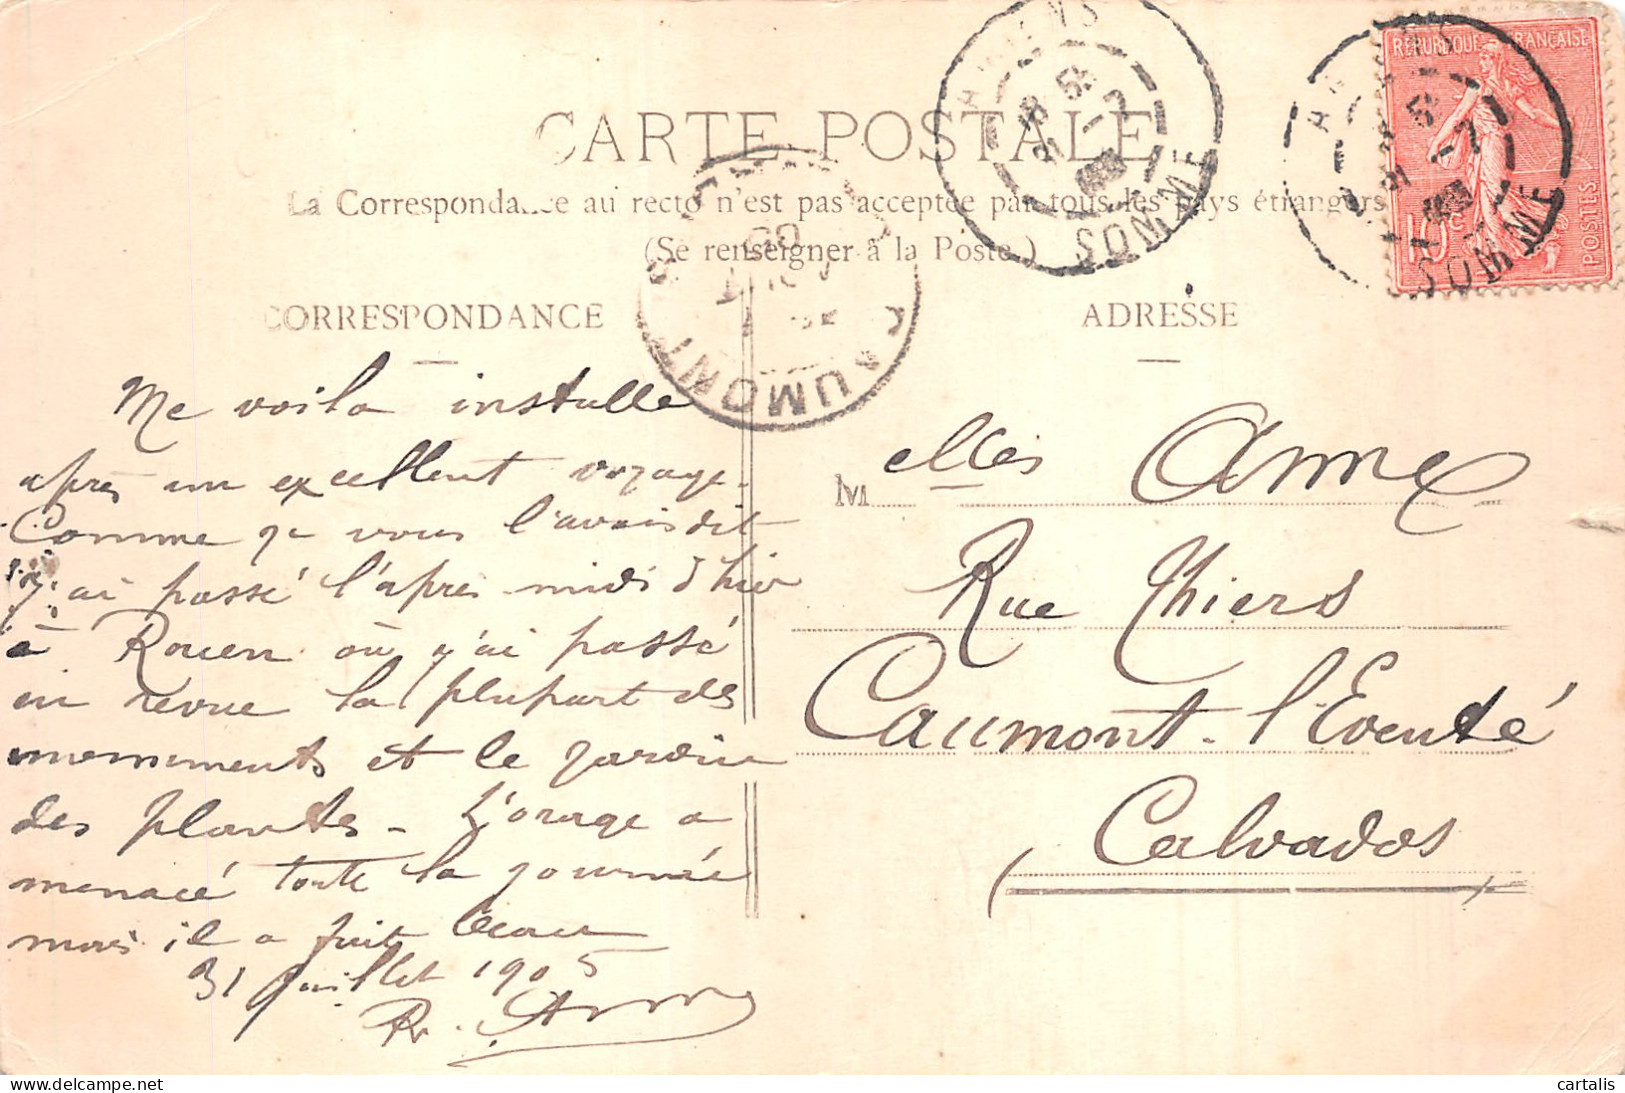 CARTE POSTALE
La Correspondance au recto n'est pas acceptée par tous les pays étrangers
(Se renseigner à la Poste.)
CORRESPONDANCE
ADRESSE
RÉPUBLIQUE FRANÇAISE
10c
POSTES
AMIENS
SOMME
AMIENS
SOMME
CAUMONT
Me voila installé
après un excellent voyage.
Comme je vous l'avais dit
j'ai passé l'après-midi d'hier
à Rouen où j'ai passé
en revue la plupart des
monuments et le jardin
des plantes - L'orage a
menacé toute la journée
mais il a fait
31 juillet 1905
M elles Anne
Rue Thiers
Caumont-l'Eventé
Calvados
cartalis